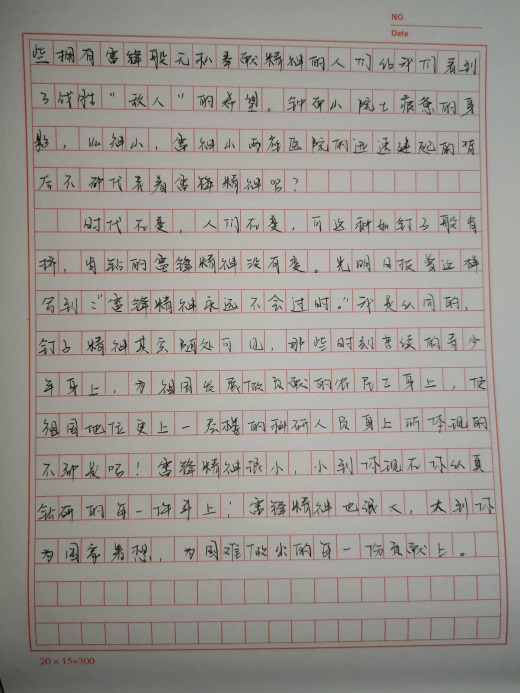 NO
Date
些拥有雷锋般无私奉献精神的人们给我们看到
了战胜“敌人”的希望。钟南山院士疲惫的身
影，火神山，雷神山两座医院的迅速建起的背
后不都代表着雷锋精神吗？
时代在变，人们在变，可这种如钉子般肯
挤，肯钻的雷锋精神没有变。光明日报曾这样
写到：“雷锋精神永远不会过时。”我是认同的，
钉子精神其实随处可见，那些时刻苦读的青少
年身上，为祖国发展做贡献的农民工身上，使
祖国地位更上一层楼的科研人员身上所体现的
不都是吗！雷锋精神很小，小到体现在你认真
钻研的每一件事上；雷锋精神也很大，大到你
为国家着想，为国难做出的每一份贡献上。
20×15=300